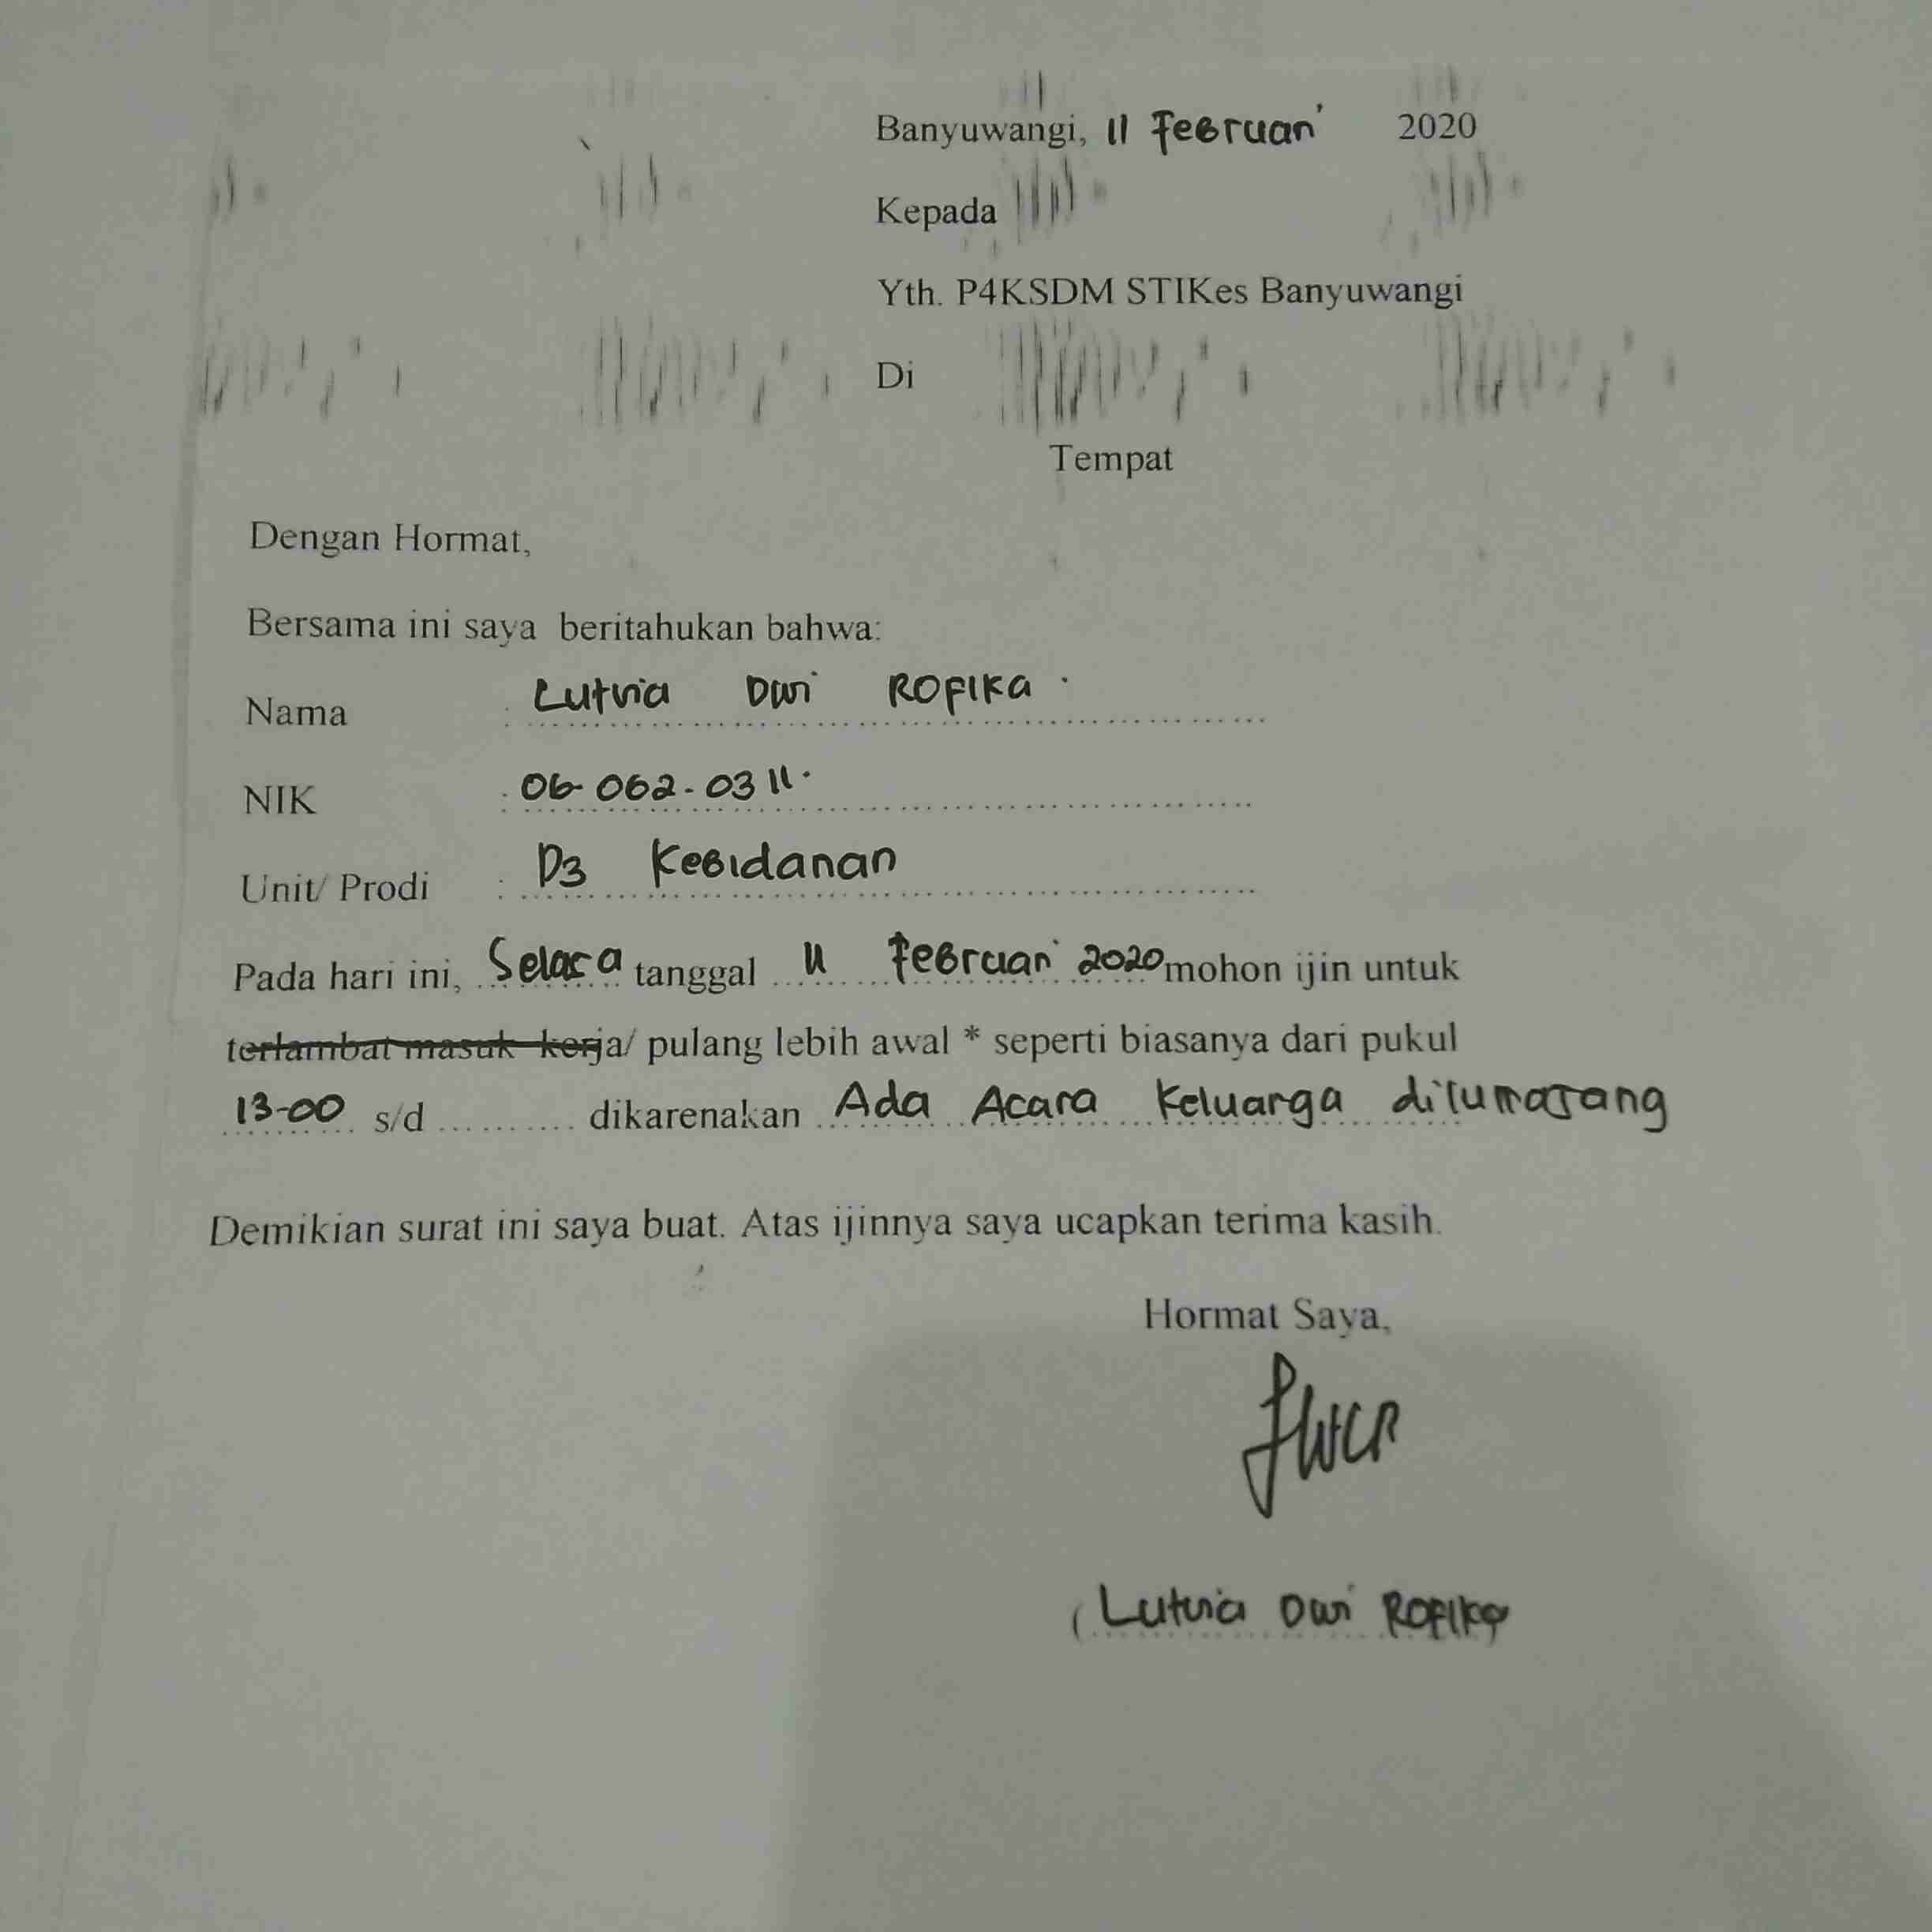 Banyuwangi, 11 Februari 2020
Kepada
Yth. P4KSDM STIKes Banyuwangi
Di
Tempat
Dengan Hormat,
Bersama ini saya beritahukan bahwa:
Nama : Lutvia Dwi Rofika.
NIK : 06-062-0311.
Unit/ Prodi : D3 Kebidanan
Pada hari ini, Selasa tanggal 11 Februari 2020 mohon ijin untuk
terlambat masuk kerja/ pulang lebih awal * seperti biasanya dari pukul
13-00 s/d .......... dikarenakan Ada Acara Keluarga dilumajang
Demikian surat ini saya buat. Atas ijinnya saya ucapkan terima kasih.
Hormat Saya,
(Lutvia Dwi Rofika